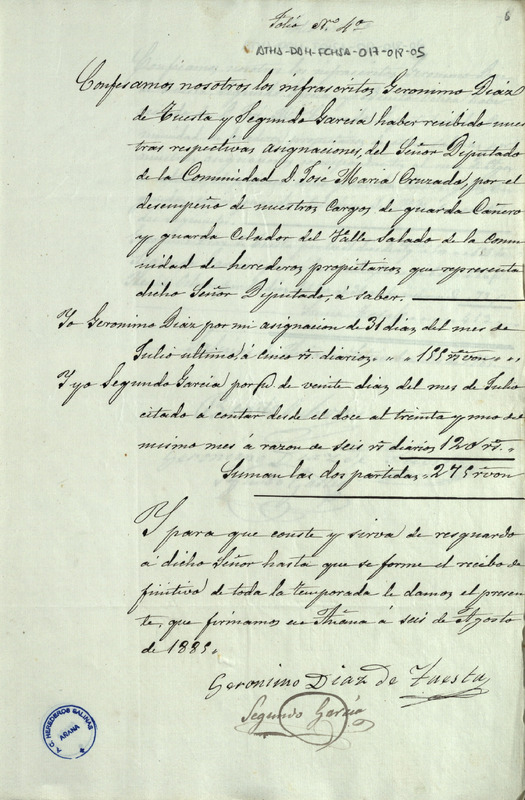 Folio Nº 4º
6
ATHA-DAH-FCHSA-017-018-05
Confesamos nosotros los infrascritos Geronimo Diaz
de Tuesta y Segundo Garcia haber recibido nues
tras respectivas asignaciones, del Señor Diputado
de la Comunidad D. José Maria Cruzado, por el
desempeño de nuestros cargos de guarda Cañero
y guarda Celador del Valle Salado de la Comu
nidad de herederos propietarios que representa
dicho Señor Diputado, á saber.
Yo Geronimo Diaz por mi asignacion de 31 diaz del mes de
Julio ultimo, á cinco rs. diarios " " 155 rs von " "
Y yo Segundo Garcia por de veinte diaz del mes de Julio
citado á contar desde el doce al treinta y uno de
mismo mes a razon de seis rs diarios 120 rs. "
Suman las dos partidas " 275 rs von
Y para que conste y sirva de resguardo
á dicho Señor hasta que se forme el recibo de
finitivo de toda la temporada le damos el presen
te, que firmamos en Añana á seis de Agosto
de 1885.
Geronimo Diaz de Tuesta
Segundo Garcia
A.C. HEREDEROS SALINAS
AÑANA